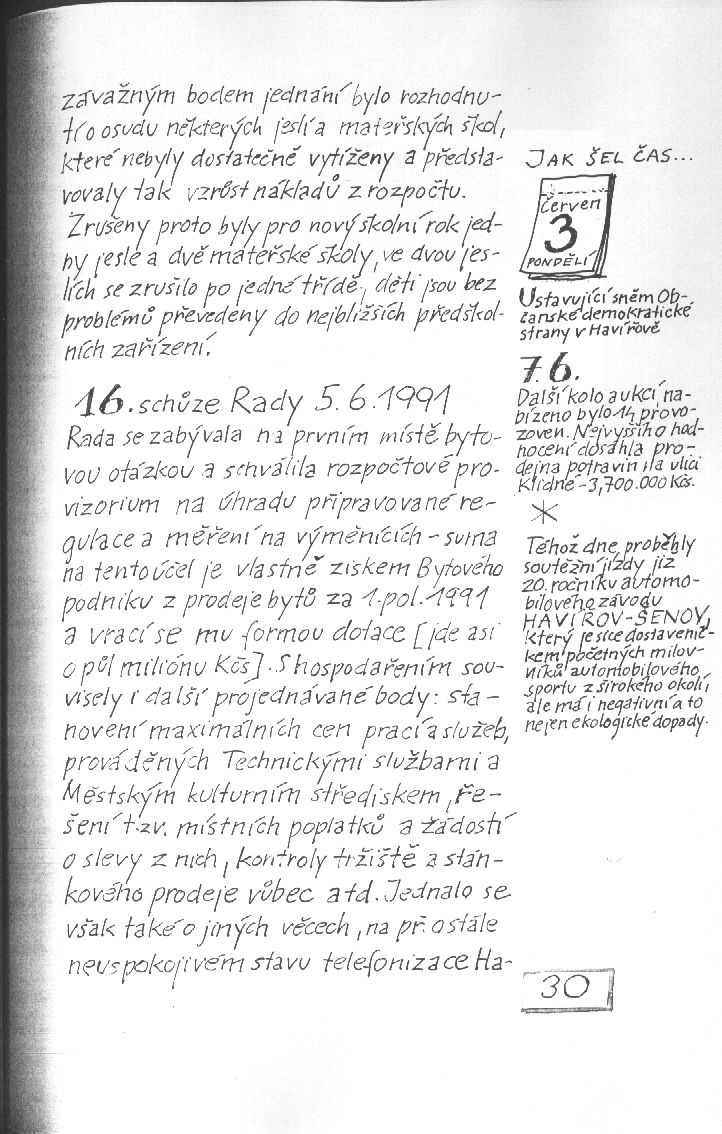 závažným bodem jednání bylo rozhodnu-
tí o osudu některých jeslí a mateřských škol,
které nebyly dostatečně vytíženy a předsta-
vovaly tak vzrůst nákladů z rozpočtu.
Zrušeny proto byly pro nový školní rok jed-
ny jesle a dvě mateřské školy, ve dvou jes-
lích se zrušilo po jedné třídě, děti jsou bez
problémů převedeny do nejbližších předškol-
ních zařízení.
16. schůze Rady 5.6.1991
Rada se zabývala na prvním místě byto-
vou otázkou a schválila rozpočtové pro-
vizorium na úhradu připravované re-
gulace a měření na výměnících - suma
na tento účel je vlastně ziskem Bytového
podniku z prodeje bytů za 1.pol.1991
a vrací se mu formou dotace [jde asi
o půl miliónu Kčs]. S hospodařením sou-
visely i další projednávané body: sta-
novení maximálních cen prací a služeb,
prováděných Technickými službami a
Městským kulturním střediskem, ře-
šení t.zv. místních poplatků a žádostí
o slevy z nich, kontroly tržiště a stán-
kového prodeje vůbec atd. Jednalo se
však také o jiných věcech, na př. o stále
neuspokojivém stavu telefonizace Ha-
JAK ŠEL ČAS...
Červen
3
PONDĚLÍ
Ustavující sněm Ob-
čanské demokratické
strany v Havířově
7.6.
Další kolo aukcí, na-
bízeno bylo 14 provo-
zoven. Nejvyššího hod-
nocení dosáhla pro-
dejna potravin na ulici
Klidné - 3,700.000 Kčs.
Téhož dne proběhly
soutěžní jízdy již
20. ročníku automo-
bilového závodu
HAVÍŘOV-ŠENOV,
který je sice dostaveníč-
kem početných milov-
níků automobilového
sportu z širokého okolí
ale má i negativní a to
nejen ekologické dopady.
30